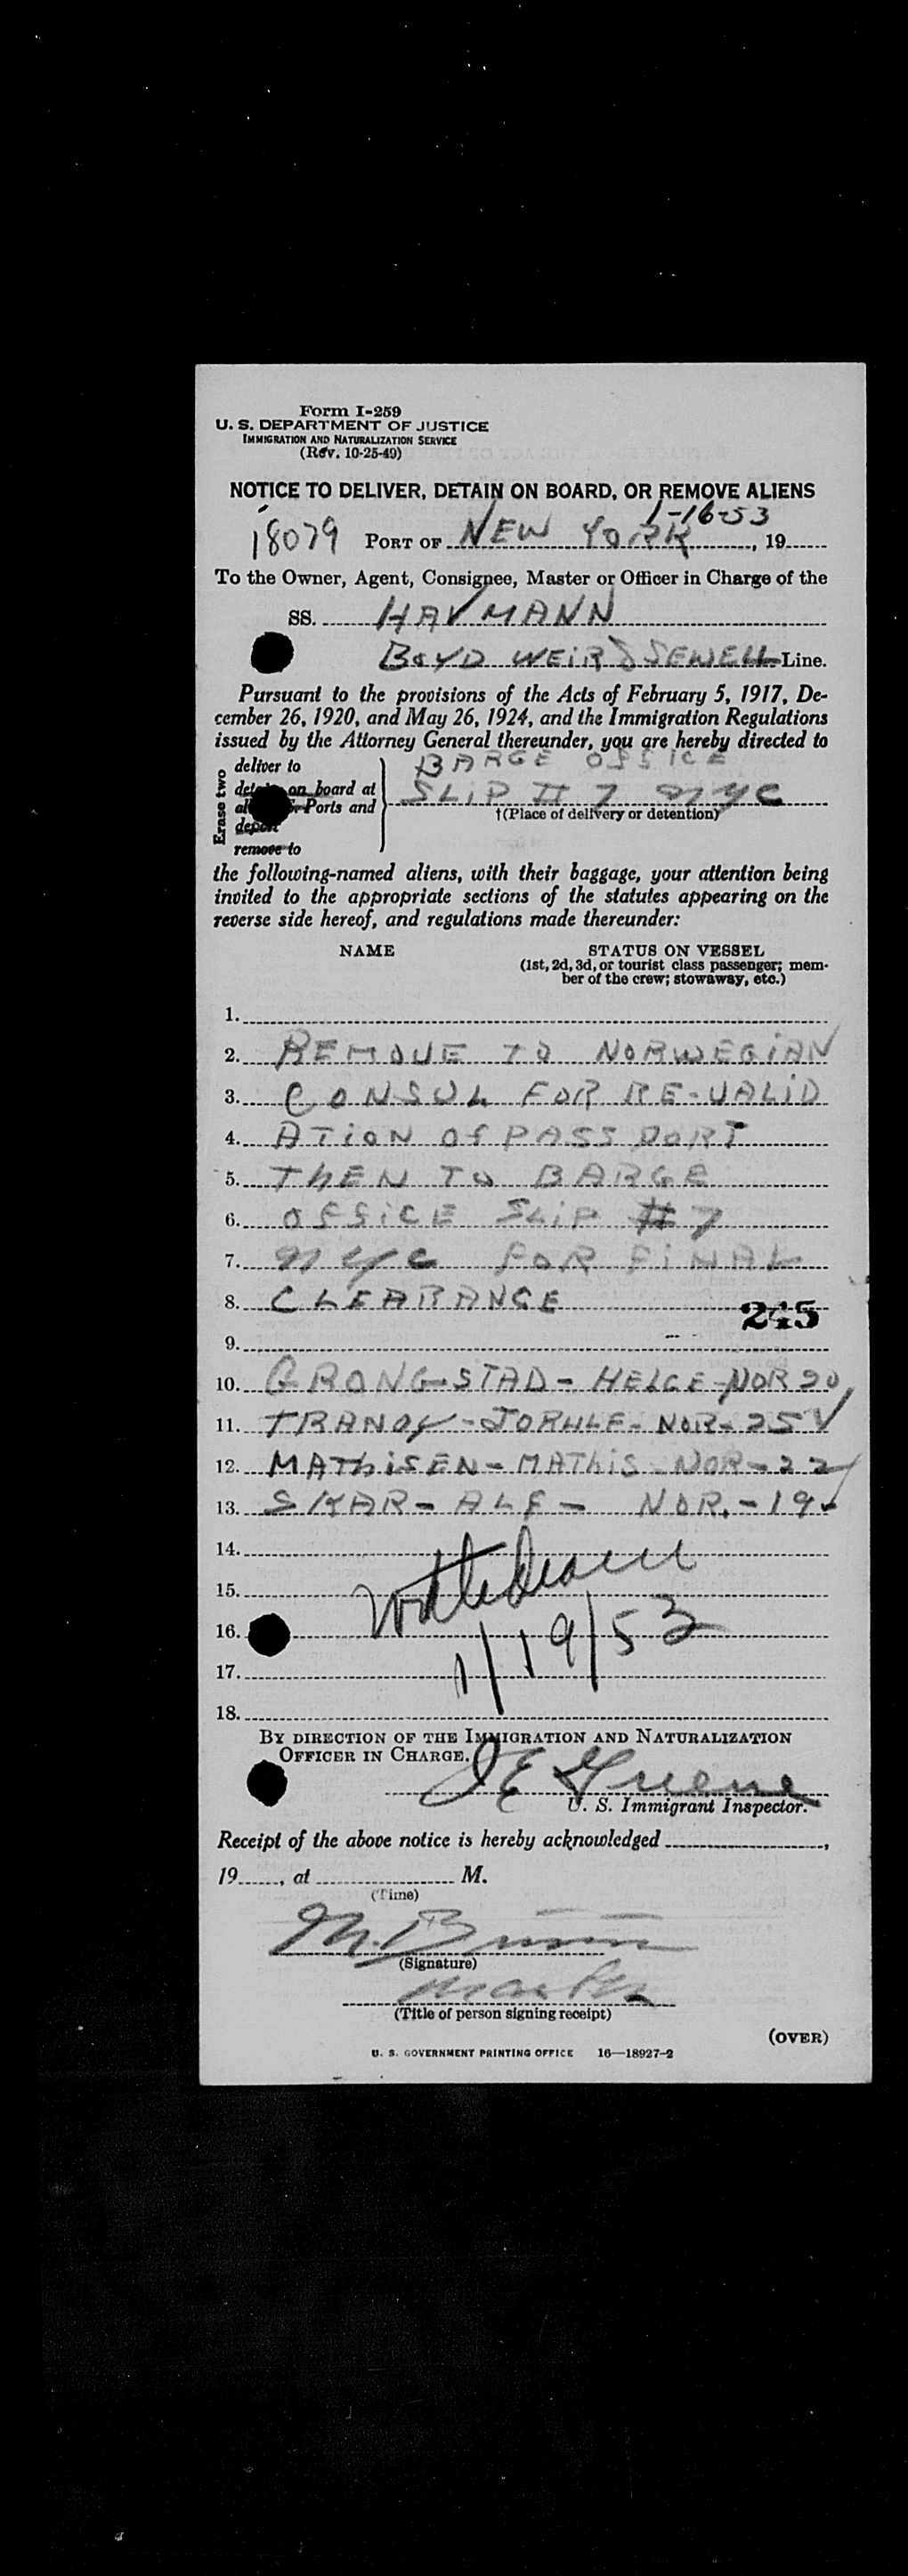 Form I-259
U. S. DEPARTMENT OF JUSTICE
IMMIGRATION AND NATURALIZATION SERVICE
(Rev. 10-25-49)
NOTICE TO DELIVER, DETAIN ON BOARD, OR REMOVE ALIENS
1-16-53
18079 PORT OF NEW YORK, 19
To the Owner, Agent, Consignee, Master or Officer in Charge of the
SS. HAVMANN
BOYD WEIR & SEWELL Line.
Pursuant to the provisions of the Acts of February 5, 1917, De-
cember 26, 1920, and May 26, 1924, and the Immigration Regulations
issued by the Attorney General thereunder, you are hereby directed to
Erase two
deliver to BARGE OFFICE
on board at SLIP # 7 NYC
Ports and
†(Place of delivery or detention)
remove to
the following-named aliens, with their baggage, your attention being
invited to the appropriate sections of the statutes appearing on the
reverse side hereof, and regulations made thereunder:
NAME STATUS ON VESSEL
(1st, 2d, 3d, or tourist class passenger; mem-
ber of the crew; stowaway, etc.)
1.
2. REMOVE TO NORWEGIAN
3. CONSUL FOR RE-VALID
4. ATION OF PASSPORT
5. THEN TO BARGE
6. OFFICE SLIP #7
7. NYC FOR FINAL
8. CLEARANCE
245
9.
10. GRONGSTAD - HELGE - NOR 20
11. TRANOY - - NOR - 25
12. MATHISEN - MATHIS - NOR - 22
13. SKAR - ALF - NOR. - 19
14.
15.
16. 1/19/53
17.
18.
BY DIRECTION OF THE IMMIGRATION AND NATURALIZATION
OFFICER IN CHARGE.
J E Greene
U. S. Immigrant Inspector.
Receipt of the above notice is hereby acknowledged ,
19 , at M.
(Time)
M.
(Signature)
(Title of person signing receipt)
(OVER)
U. S. GOVERNMENT PRINTING OFFICE 16—18927-2